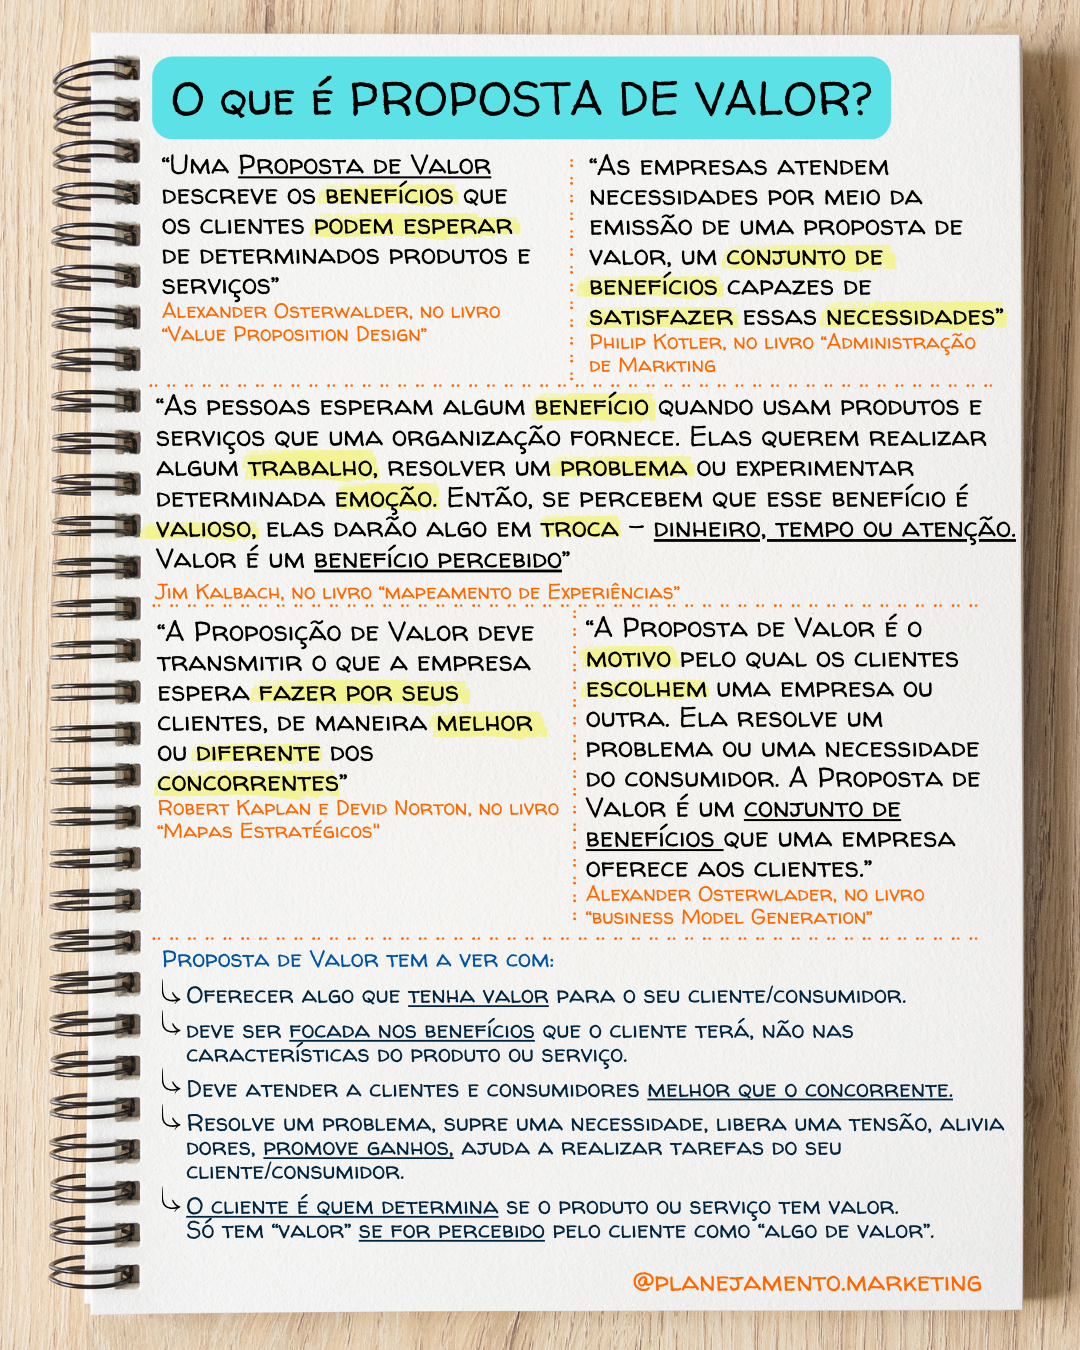 O que é PROPOSTA DE VALOR?
“Uma Proposta de Valor
descreve os benefícios que
os clientes podem esperar
de determinados produtos e
serviços”
Alexander Osterwalder, no livro
“Value Proposition Design”
“As empresas atendem
necessidades por meio da
emissão de uma proposta de
valor, um conjunto de
benefícios capazes de
satisfazer essas necessidades”
Philip Kotler, no livro “Administração
de Markting
“As pessoas esperam algum benefício quando usam produtos e
serviços que uma organização fornece. Elas querem realizar
algum trabalho, resolver um problema ou experimentar
determinada emoção. Então, se percebem que esse benefício é
valioso, elas darão algo em troca – dinheiro, tempo ou atenção.
Valor é um benefício percebido”
Jim Kalbach, no livro “mapeamento de Experiências”
“A Proposição de Valor deve
transmitir o que a empresa
espera fazer por seus
clientes, de maneira melhor
ou diferente dos
concorrentes”
Robert Kaplan e Devid Norton, no livro
“Mapas Estratégicos"
“A Proposta de Valor é o
motivo pelo qual os clientes
escolhem uma empresa ou
outra. Ela resolve um
problema ou uma necessidade
do consumidor. A Proposta de
Valor é um conjunto de
benefícios que uma empresa
oferece aos clientes.”
Alexander Osterwlader, no livro
“business Model Generation”
Proposta de Valor tem a ver com:
Oferecer algo que tenha valor para o seu cliente/consumidor.
deve ser focada nos benefícios que o cliente terá, não nas
características do produto ou serviço.
Deve atender a clientes e consumidores melhor que o concorrente.
Resolve um problema, supre uma necessidade, libera uma tensão, alivia
dores, promove ganhos, ajuda a realizar tarefas do seu
cliente/consumidor.
O cliente é quem determina se o produto ou serviço tem valor.
Só tem “valor” se for percebido pelo cliente como “algo de valor”.
@planejamento.marketing